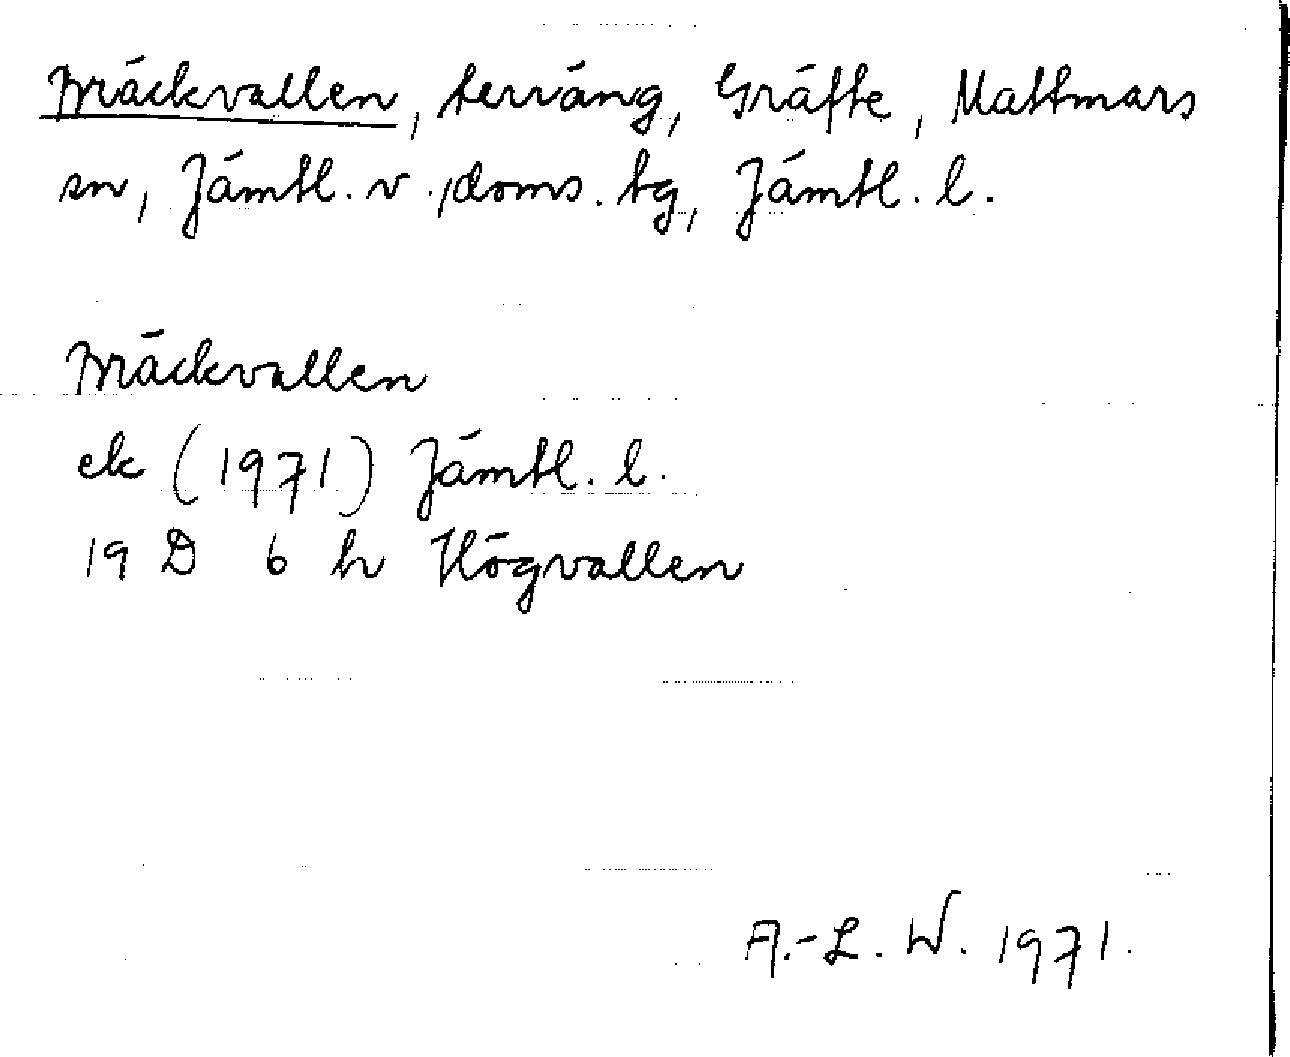 Bräckvallen, terräng, Gräfte, Mattmars
sn, Jämtl. v. doms. tg, Jämtl. l.
Bräckvallen
ek (1971) Jämtl. l.
19 D 6 h Högvallen
A.-L. W. 1971.